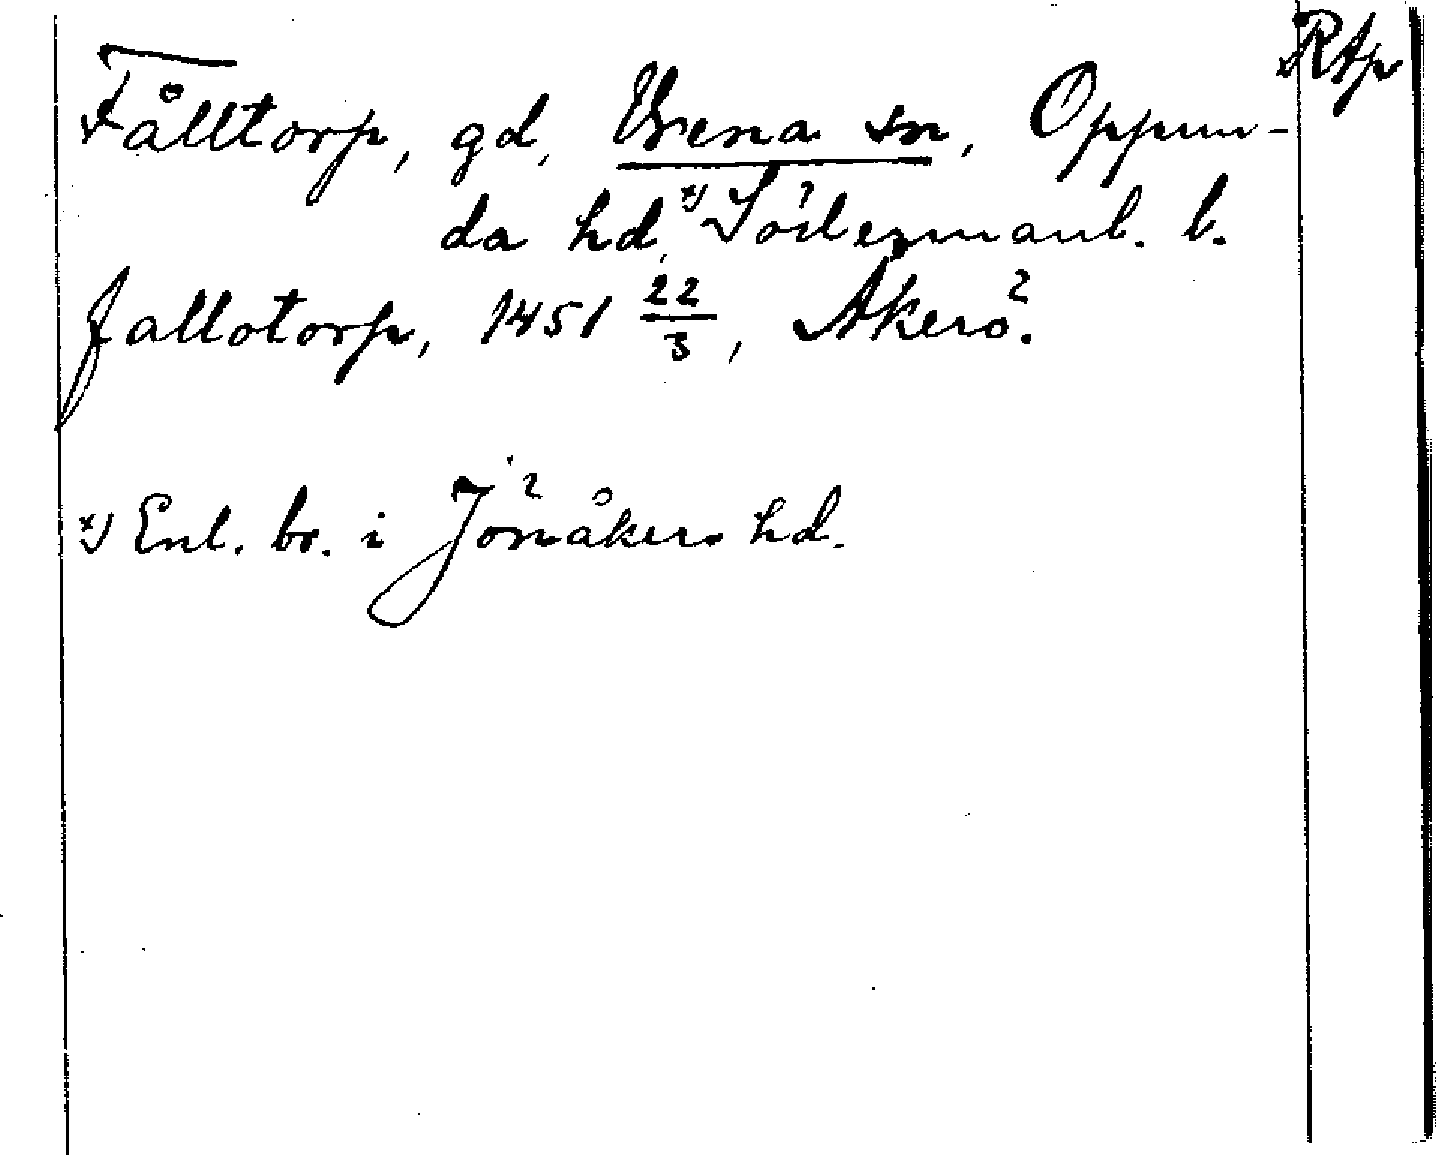 Rtp
Fålltorp, gd, Vrena sn, Oppun-
da hd,x) Södermanl. l.
fallotorp, 1451 22/3, Åkerö.
x) Enl. br. i Jönåkers hd.